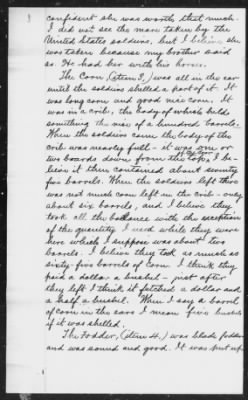 confident she was worth that much.
I did not see the mare taken by the
United States soldiers, but I know she
was taken because my brother said
so. He had her with his horses.
The Corn, (Item 3,) was all in the ear
until the soldiers shelled a part of it. It
was long corn and good nice corn. It
was in a crib, the body of which holds
something the rise of a hundred barrels.
When the soldiers came the body of the
crib was nearly full – it was one or
two boards down from the top, I be-
lieve it then contained about seventy
five barrels. When the soldiers left there
was not much corn left in the crib – only
about six barrels, and I believe they
took all the balance with the exception
of the quantity I used while they were
here which I suppose was about two
barrels. I believe they took as much as
sixty-five barrels of corn. I think they
paid a dollar a bushel – just after
they left I think it fetched a dollar and
a half a bushel. When I say a barrel
of corn in the ears I mean five bushels
if it was shelled.
The Fodder, (Item 4.) was blade fodder
and was sound and good. It was put up